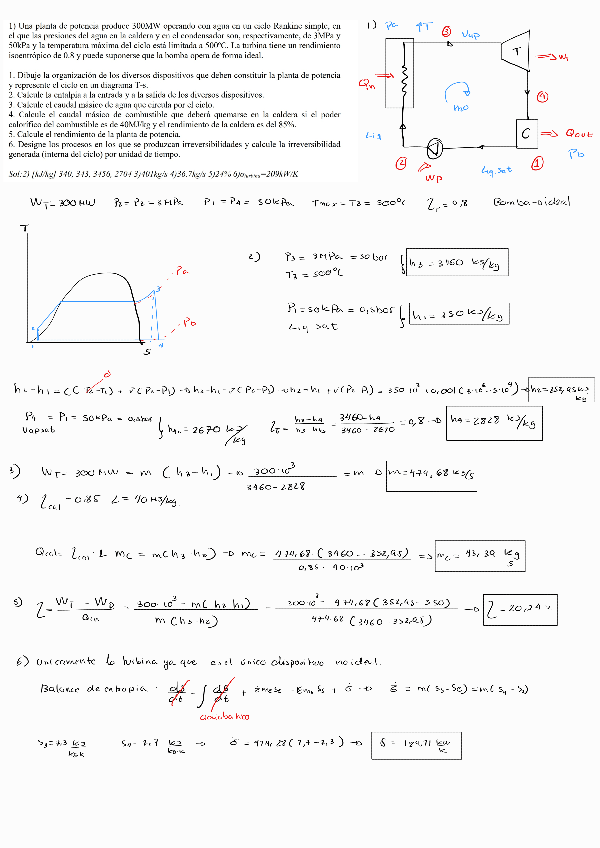 1) Una planta de potencia produce 300MW operando con agua en un ciclo Rankine simple, en
el que las presiones del agua en la caldera y en el condensador son, respectivamente, de 3MPa y
50kPa y la temperatura máxima del ciclo está limitada a 500ºC. La turbina tiene un rendimiento
isoentrópico de 0.8 y puede suponerse que la bomba opera de forma ideal.
1. Dibuje la organización de los diversos dispositivos que deben constituir la planta de potencia
y represente el ciclo en un diagrama T-s.
2. Calcule la entalpía a la entrada y a la salida de los diversos dispositivos.
3. Calcule el caudal másico de agua que circula por el ciclo.
4. Calcule el caudal másico de combustible que deberá quemarse en la caldera si el poder
calorífico del combustible es de 40MJ/kg y el rendimiento de la caldera es del 85%.
5. Calcule el rendimiento de la planta de potencia.
6. Designe los procesos en los que se produzcan irreversibilidades y calcule la irreversibilidad
generada (interna del ciclo) por unidad de tiempo.
Sol:2) [kJ/kg] 340, 343, 3456, 2704 3)401kg/s 4)36.7kg/s 5)24% 6)σ=209kW/K
1) Pa ↑T ③ Vap
T ⇒ Wt
Qin
mo
④
C ⇒ Qout
Liq
② Wp Liq. sat ① Pb
WT = 300 MW P3 = P2 = 3MPa P1 = P4 = 50kPa Tmax = T3 = 500ºC = 0,8 Bomba-ideal
T
Pa
3
Pb
2
1 S 4
2) P3 = 3MPa = 30bar
T3 = 500ºC
h3 = 3460 kJ/kg
P1 = 50kPa = 0,5bar
Liq sat
h1 = 350 kJ/kg
0
h2-h1 = (C (T2-T1) + v(P2-P1) → h2-h1 = v(P2-P1) → h2 = h1 + v(P2-P1) = 350·10³ + 0,001(3·10⁶ - 5·10⁴) → h2 = 352,95 kJ/kg
P4 = P1 = 50kPa = 0,5bar
Vap sat
h4s = 2670 kJ/kg
= h3-h4 / h3-h4s = 3460-h4 / 3460-2670 = 0,8 → h4 = 2828 kJ/kg
3) WT = 300MW = m (h3-h4) → 300·10³ / 3460-2828 = m → m = 474,68 kg/s
4) cal = 0,85 L = 40 MJ/kg
Qcal = cal · L mc = m(h3-h2) → mc = 474,68·(3460-352,95) / 0,85·40·10³ ⇒ mc = 43,39 kg/s
5) = WT - WP / Qin = 300·10³ - m(h2-h1) / m(h3-h2) = 300·10³ - 474,68(352,95-350) / 474,68 (3460-352,95) → = 20,24%
6) Unicamente la turbina ya que es el unico dispositivo no ideal.
Balance de entropia: ds/dt = ∫ + Σmese - Σmsss + σ̇ → σ̇ = m(ss-se) = m(s4-s3)
adiabatica
s3 = 7,3 kJ/kgK s4 = 7,7 kJ/kgK → σ̇ = 474,28(7,7-7,3) →